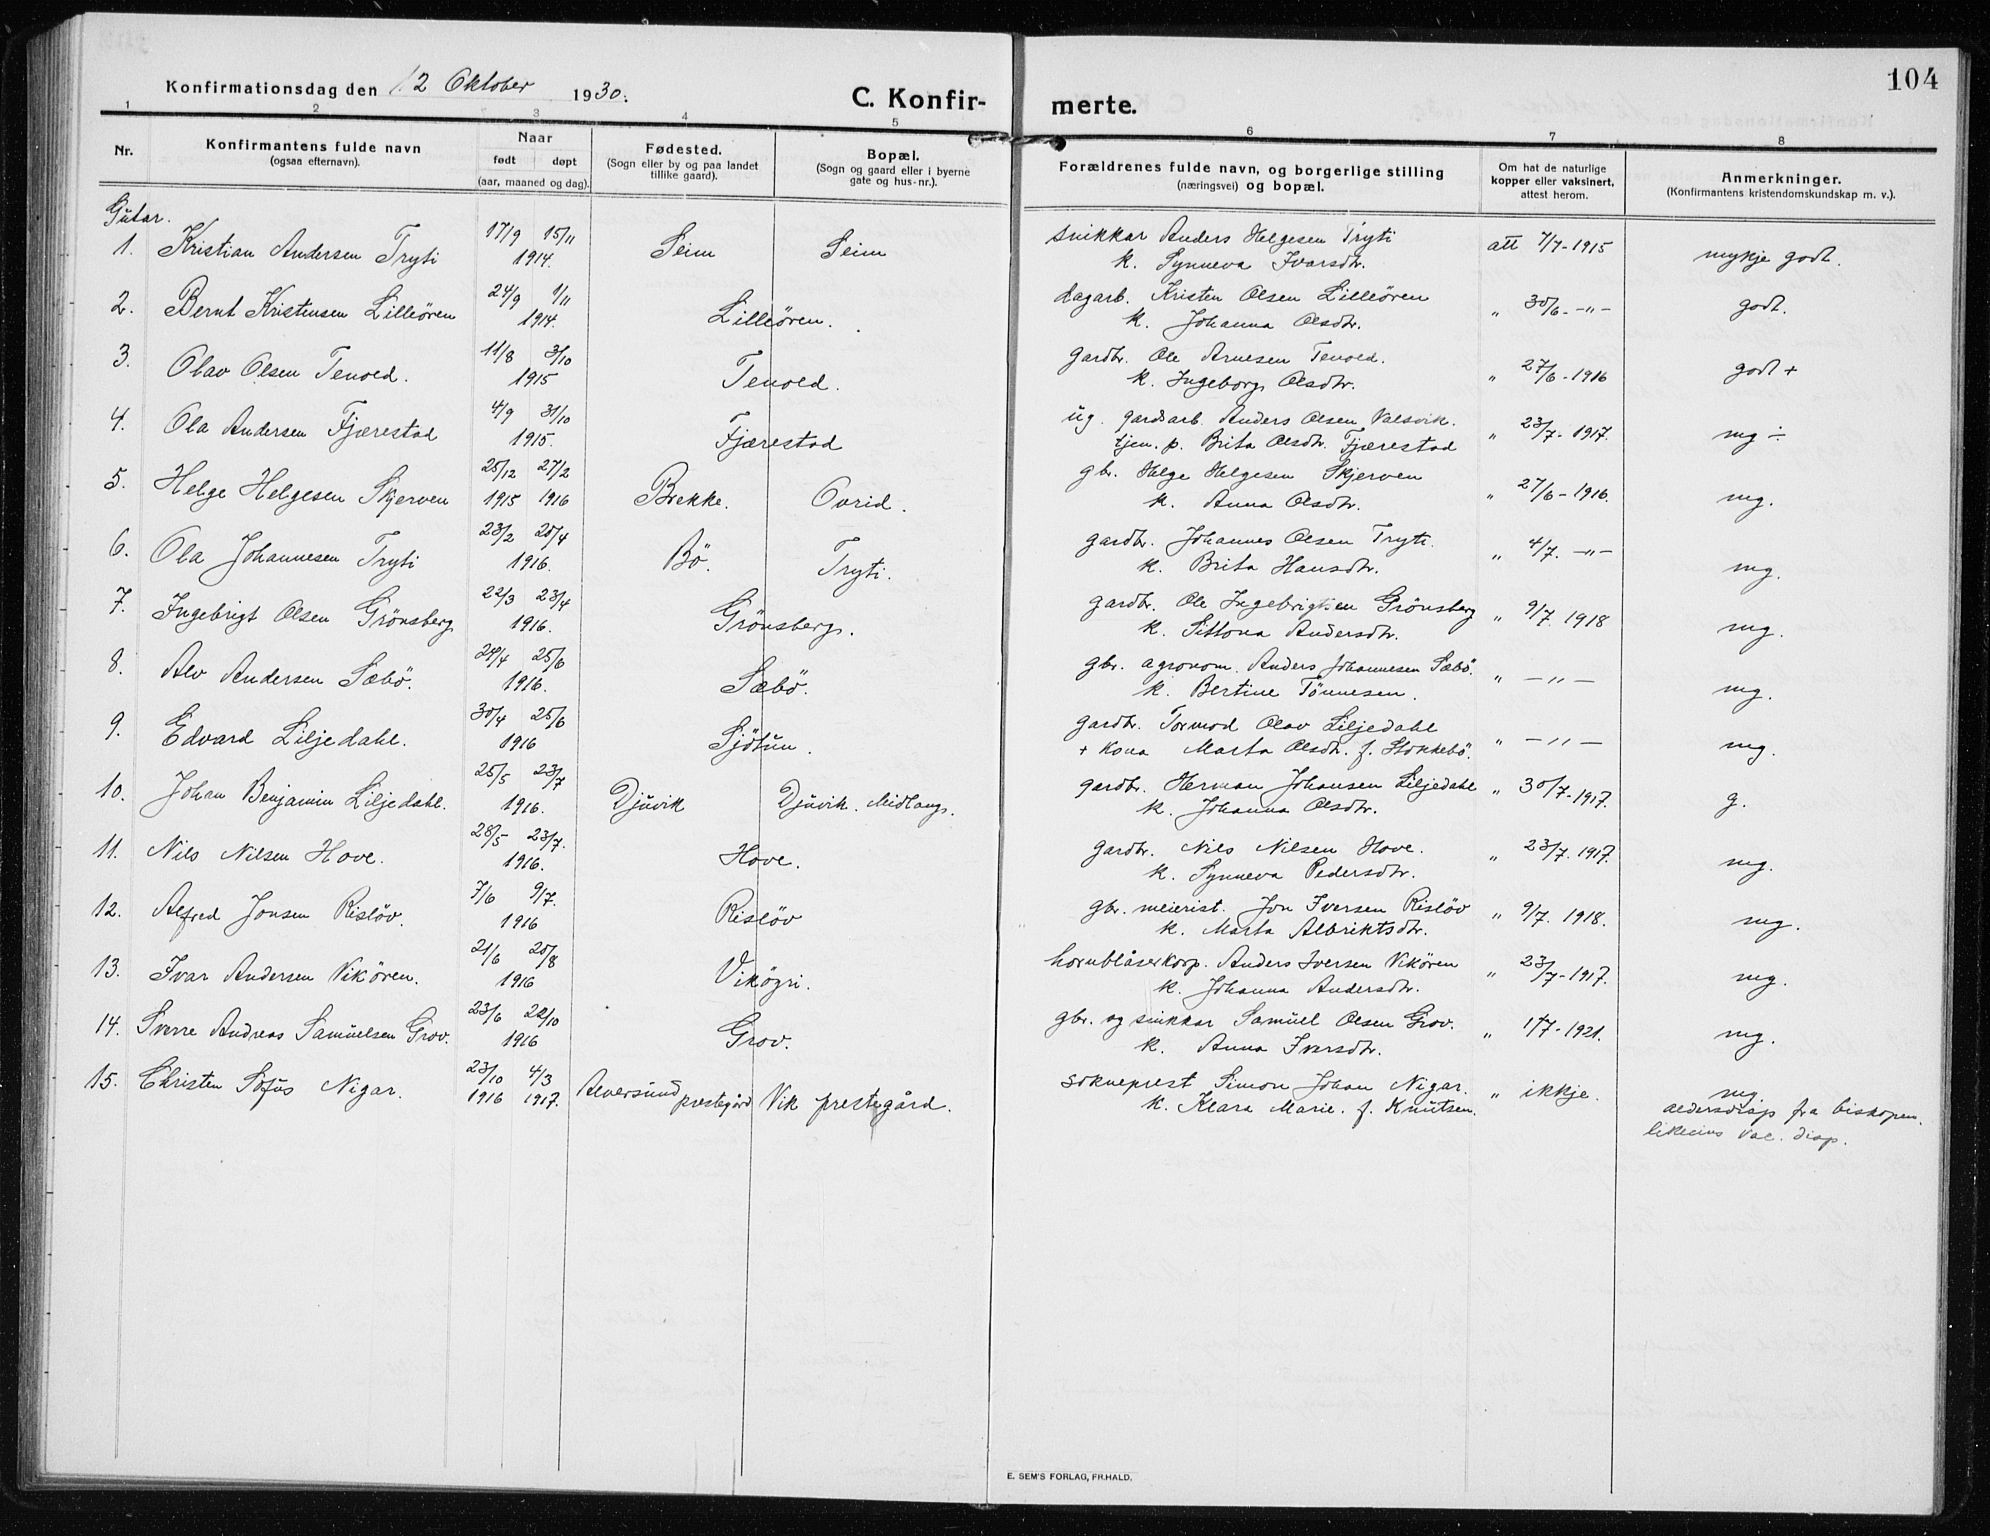 104
Konfirmationsdag den 12 Oktober 1930.
C. Konfir-
merte.
1 2 3 4 5 6 7 8
Nr.
Konfirmantens fulde navn
(ogsaa efternavn).
Naar
født døpt
(aar, maaned og dag).
Fødested.
(Sogn eller by og paa landet
tillike gaard).
Bopæl.
(Sogn og gaard eller i byerne
gate og hus-nr.).
Forældrenes fulde navn, og borgerlige stilling
(næringsvei) og bopæl.
Om hat de naturlige
kopper eller vaksinert,
attest herom.
Anmerkninger.
(Konfirmantens kristendomskundskap m. v.).
Gutar.
1. Kristian Andersen Tryti 17/9 15/11 1914. Seim Seim snikkar Anders Helgesen Tryti att 7/7-1915 mykje godt.
k. Synneva Ivarsdtr.
2. Bernt Kristensen Lilleören 24/9 1/11 1914. Lilleören. dagarb. Kristen Olsen Lilleören " 30/6.-"- godt.
k. Johanna Olsdtr.
3. Olav Olsen Tenold. 11/8 3/10 1915 Tenold. gardbr. Ole Arnesen Tenold. " 27/6-1916 godt +
k. Ingeborg Olsdtr.
4. Ola Andersen Fjærestad 4/9 31/10 1915. Fjærestad ug. gardsarb. Anders Olsen Valsvik. " 23/7-1917. mg ÷
tjen. p. Brita Olsdtr. Fjærestad
5. Helge Helgesen Skjerven 25/12 1915 27/2 1916 Brekke. Ovrid. gbr. Helge Helgesen Skjerven " 27/6-1916. mg.
k. Anna Olsdtr.
6. Ola Johannesen Tryti 23/2 25/4 1916. Bö. Tryti. gardbr. Johannes Olsen Tryti. " 4/7. -"- mg.
k. Brita Hansdtr.
7. Ingebrigt Olsen Grönsberg 22/3 23/4 1916. Grönsberg. gardbr. Ole Ingebrigtsen Grönsberg " 9/7. 1918 mg.
k. Andersdtr.
8. Alv Andersen Sæbö. 24/4 25/6 1916. Sæbö. gbr. agronom. Anders Johannesen Sæbö. " -"- mg.
k. Bertine Tönnesen.
9. Edvard Liljedahl. 30/4 25/6 1916 Sjötun. gardbr. Tormod Olav Liljedahl " -"- mg.
+ kona Marta Olsdtr. f. Stokkebö.
10. Johan Benjamin Liljedahl. 25/5 23/7 1916. Djuvik Djuvik. Midlang. gardbr. Herman Johansen Liljedahl " 30/7-1917. g.
k. Johanna Olsdtr.
11. Nils Nilsen Hove. 28/5 23/7. 1916. Hove. gardbr. Nils Nilsen Hove. " 23/7.1917. mg.
k. Synneva Pedersdtr.
12. Alfred Jonsen Rislöv. 7/6 9/7. 1916 Rislöv gbr. meierist. Jon Iversen Rislöv " 9/7. 1918. mg.
k. Marta Albriktsdtr.
13. Ivar Andersen Vikören. 21/6 20/8 1916 Vikögri. hornblåserkorp. Anders Iversen Vikören " 23/7-1917. mg.
k. Johanna Andersdtr.
14. Sverre Andreas Samuelsen Grov. 23/6 22/10 1916 Grov. gbr. og snikkar Samuel Olsen Grov. " 1/7-1921. mg.
k. Anna Iversdtr.
15. Christen Sofus Nigar. 23/10 1916 4/3 1917. Alversund prestegård Vik prestegård. sokneprest Simon Johan Nigar. " ikkje. mg.
k. Klara Marie. f. Knutsen. aldersdisp fra biskopen.
likeeins vac. disp.
E. SEM'S FORLAG, FR.HALD.